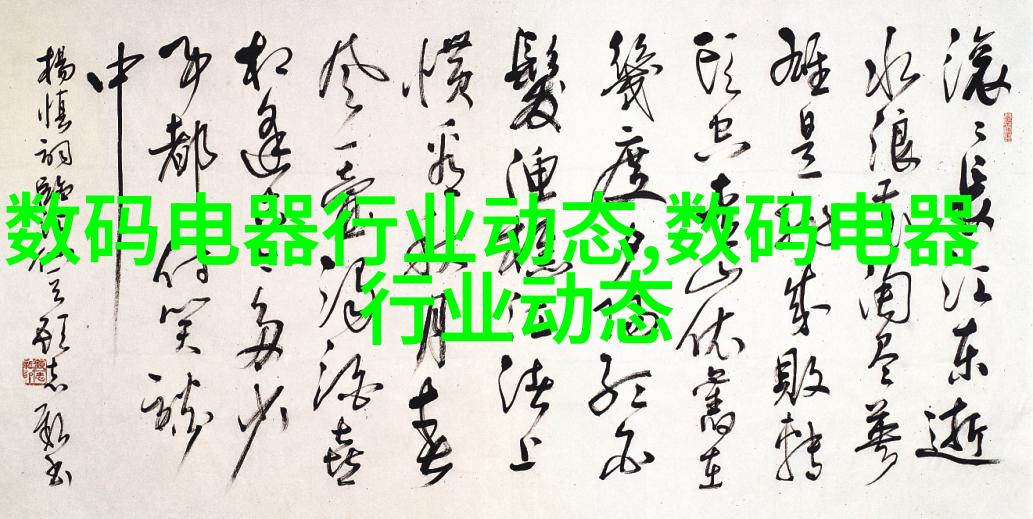 数码电器行业动态,数码电器
行业动态
滚〻長江东逝
水浪花淘尽英
雄是非成敗轉
頭空青山依舊在
幾度夕陽红白
髮渔樵江渚上
惯看秋月春
风一壶浊酒喜
相逢古今多少
事都付笑谈
中
楊慎詞臨江仙